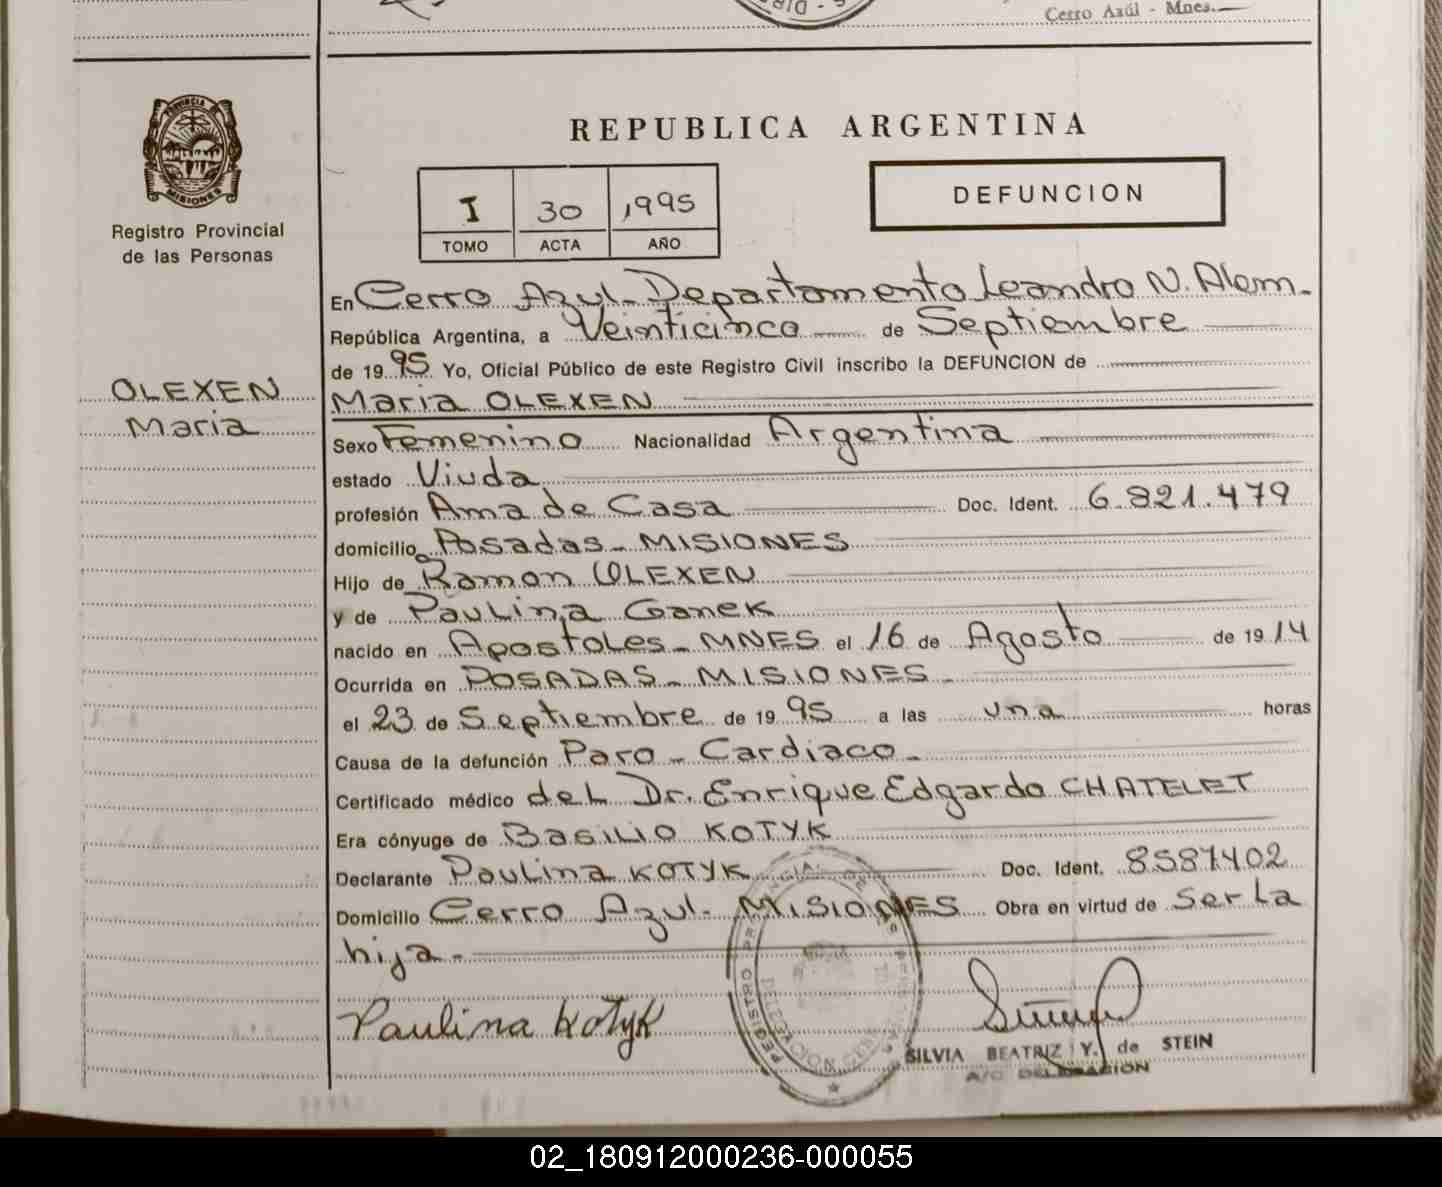 Cerro Azúl - Mnes.
PROVINCIA
MISIONES
Registro Provincial
de las Personas
OLEXEN
Maria
REPUBLICA ARGENTINA
I 30 1995
TOMO ACTA AÑO
DEFUNCION
En Cerro Azul - Departamento Leandro N. Alem.
República Argentina, a Veinticinco de Septiembre
de 1995 Yo, Oficial Público de este Registro Civil inscribo la DEFUNCION de
Maria OLEXEN
Sexo Femenino Nacionalidad Argentina
estado Viuda
profesión Ama de Casa Doc. Ident. 6.821.479
domicilio Posadas - MISIONES
Hijo de Ramon OLEXEN
y de Paulina Ganek
nacido en Apostoles - MNES el 16 de Agosto de 1914
Ocurrida en POSADAS - MISIONES -
el 23 de Septiembre de 1995 a las una horas
Causa de la defunción Paro - Cardiaco -
Certificado médico del Dr. Enrique Edgardo CHATELET
Era cónyuge de BASILIO KOTYK
Declarante Paulina KOTYK Doc. Ident. 8587402
Domicilio Cerro Azul - MISIONES Obra en virtud de Ser La
hija -
Paulina Kotyk
SILVIA BEATRIZ Y. de STEIN
A/C DELEGACION
02_180912000236-000055